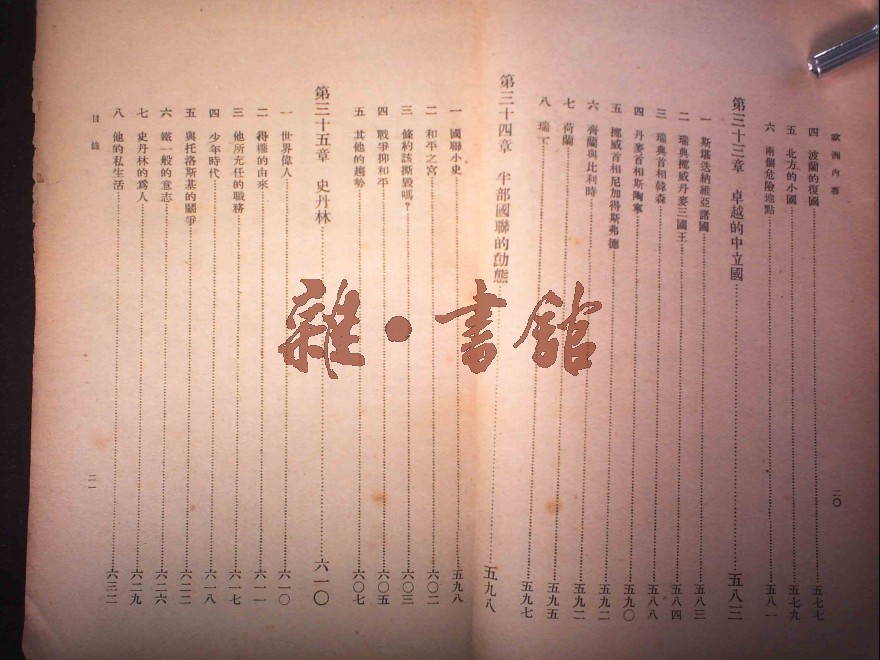 歐洲內幕
二〇
四 波蘭的復國 五七七
五 北方的小國 五七九
六 兩個危險地點 五八一
第三十三章 卓越的中立國 五八三
一 斯堪迭納維亞諸國 五八三
二 瑞典挪威丹麥三國王 五八四
三 瑞典首相韓森 五八八
四 丹麥首相斯陶寧 五九〇
五 挪威首相尼加得斯弗德 五九二
六 齊蘭與比利時 五九二
七 荷蘭 五九五
八 瑞士 五九七
第三十四章 半部國聯的動態 五九八
一 國聯小史 五九八
二 和平之宮 六〇二
三 條約該撕毀嗎？ 六〇三
四 戰爭抑和平 六〇五
五 其他的趨勢 六〇七
第三十五章 史丹林 六一〇
一 世界偉人 六一〇
二 得權的由來 六一一
三 他所充任的職務 六一七
四 少年時代 六一八
五 與托洛斯基的鬭爭 六二二
六 鐵一般的意志 六二六
七 史丹林的爲人 六二九
八 他的私生活 六三二
目錄
二一
雜·書館